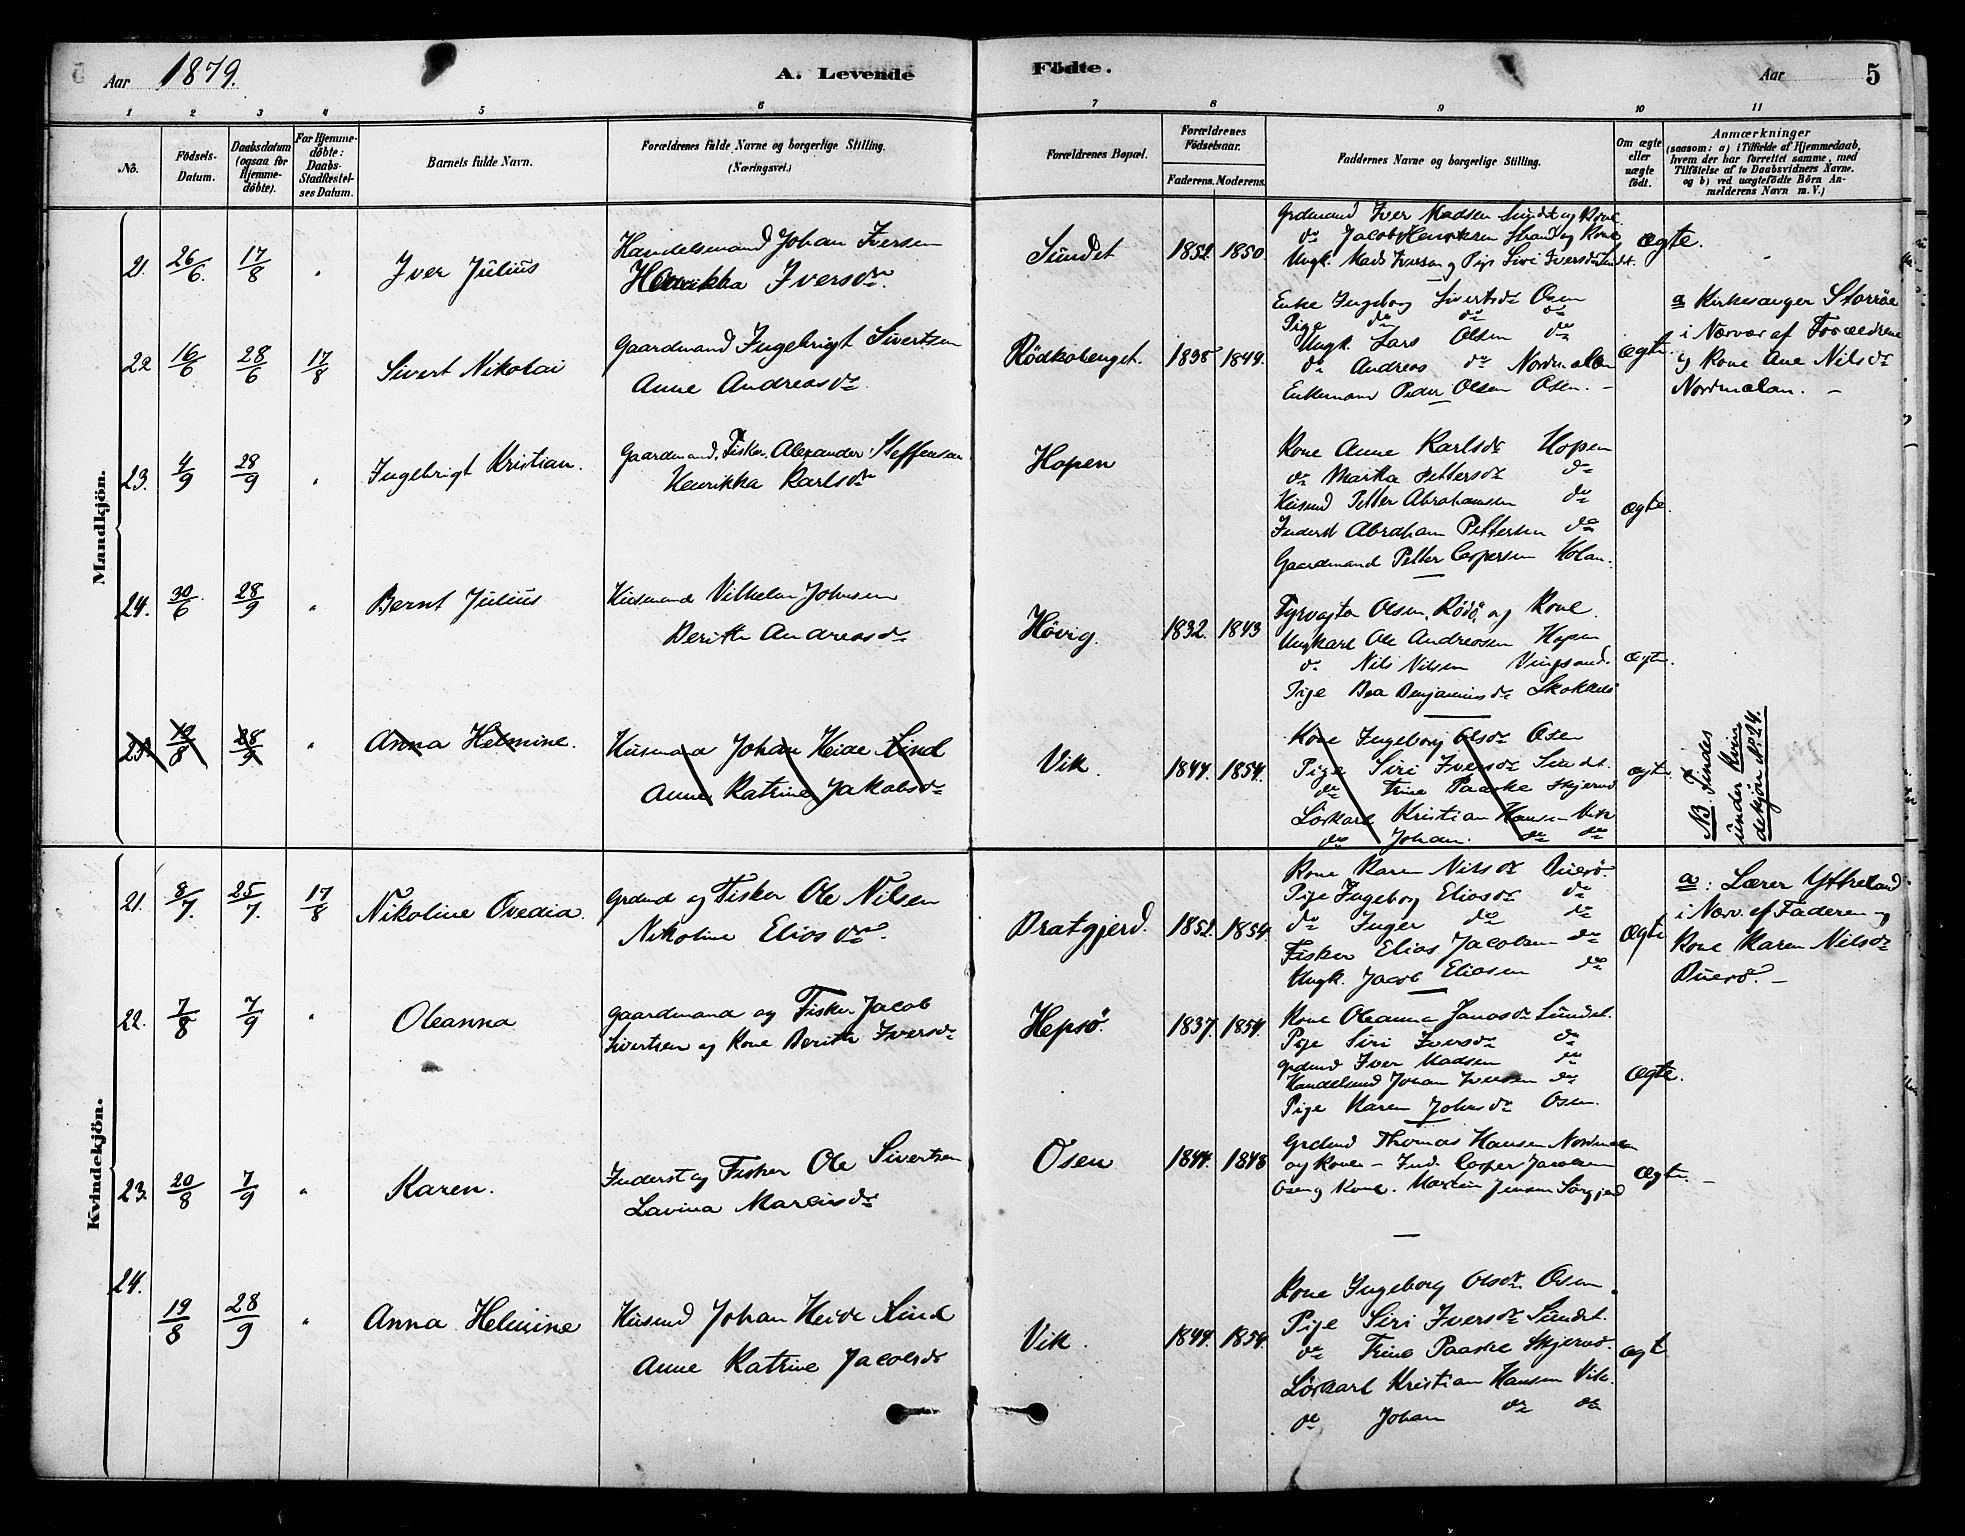 Aar 1879.
A. Levende Födte.
Aar 5
1 2 3 4 5 6 7 8 9 10 11
No.
Födsels-Datum.
Daabsdatum (ogsaa for Hjemme-döbte).
For Hjemme-döbte: Daabs-Stadfæstel-ses Datum.
Barnets fulde Navn.
Forældrenes fulde Navne og borgerlige Stilling. (Næringsvei.)
Forældrenes Bopæl.
Forældrenes Födselsaar.
Faderens. Moderens.
Faddernes Navne og borgerlige Stilling.
Om ægte eller uægte födt.
Anmærkninger
(saasom: a) i Tilfælde af Hjemmedaab,
hvem der har forrettet samme, med
Tilföielse af to Daabsvidners Navne.
og b) ved uægtefödte Börn An-
melderens Navn m. V.)
Mandkjön.
21. 26/6. 17/8 " Iver Julius
Handelsmand Johan Iversen
Henrikka Iversdr.
Sundet 1852. 1850.
Grdmand Iver Madsen Sundet og Kone
do Jacob Henriksen Strand og Kone
Ungk. Mads Iversen og Pige Siri Iversdr Sundet.
Ægte.
22 16/6 28/6 17/8 Sivert Nikolai
Gaardmand Ingebrigt Sivertsen
Anne Andreasdr
Rödkobenget. 1835 1849.
Enke Ingeborg Sivertsdr Osen
Pige do do do
Ungk. Lars Olsen do
do Andreas do Nordmælan
Enkemand Peder Olsen Osen. –
Ægte.
a Kirkesanger Storröe
i Nærvær af Forældrene
og Kone Ane Nilsdr
Nordmælan. –
23. 4/9 28/9 " Ingebrigt Kristian.
Gaardmand, Fisker, Alexander Steffensen
Henrikka Karlsdr
Hopen
Kone Anne Karlsdr Hopen
do Martha Pettersdr do
Husmd Petter Abrahamsen do
Inderst Abraham Pettersen do
Gaardmand Petter Caspersen Holan.
Ægte.
24. 30/6 28/9 " Bernt Julius
Husmand Vilhelm Johnsen
Berith Andreasdr
Hövig. 1832. 1843
Fyrvogter Olsen, Rödö, og Kone.
Ungkarl Ole Andreasen Hopen
do Nils Nilsen Vingsand.
Pige Bea Benjaminsdr
Ægte.
25. 19/8 28/9 " Anna Helmine.
Husmand Johan Heide Lind
Anne Katrine Jakobsdr
Vik. 1844. 1854.
Kone Ingeborg Olsdr Osen
Pige Siri Iversdr Sundet.
do Trine Paaske Skjervö
Löskarl Kristian Hansen Vik
do Johan. do do
Ægte
NB. Findes
under Kvin
dekjön No 24.
Kvindekjön.
21. 8/7. 25/7. 17/8 Nikoline Ovedia.
Grdmd og Fisker Ole Nilsen
Nikoline Eliasdr.
Bratgjerd. 1852. 1854.
Kone Karen Nilsdr
Pige Ingeborg Eliasdr do
do Inger do do
Fisker Elias Jacobsen do
Ungk. Jacob Eliasen do
Ægte
a: Lærer Yttreland
i Nærv. af Faderen og
Kone Karen Nilsdr
22. 7/8 7/9 " Oleanna
Gaardmand og Fisker Jacob
Sivertsen og Kone Berith Iversdr
Hepsö. 1837. 1854.
Kone Oleanna Jonasdr Sundet.
Pige Siri Iversdr do
Grdmd Iver Madsen do
Handelsmd Johan Iversen do
Pige Karen Johnsdr Osen.
Ægte.
23. 20/8 7/9 " Karen.
Inderst og Fisker Ole Sivertsen
Lavina Mareusdr
Osen 1844. 1848
Grdmd Thomas Hansen Nordmelan
og Kone – Ind. Casper Jacobsen
Osen og Kone. Martin Jensen Sörgjerd
Ægte. –
24. 19/8 28/9 " Anna Helmine
Husmd Johan Heide Lind
Anne Katrine Jacobsdr
Vik. 1844. 1854.
Kone Ingeborg Olsdr Osen.
Pige Siri Iversdr Sundet.
do Trine Paaske Skjervö.
Löskarl Kristian Hansen Vik.
do Johan do do
Ægt